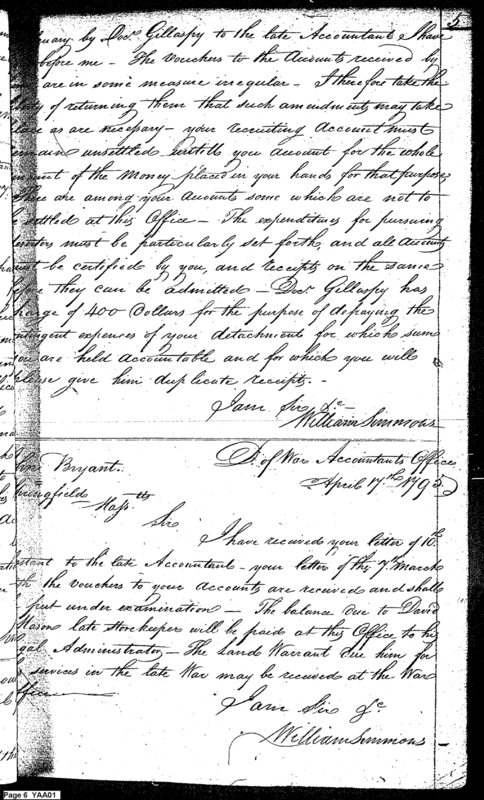 5
nuary by Docr. Gillaspy to the late Accountant I have
before me - The vouchers to the Accounts received by
are in some measure irregular - I therefore take the
liberty of returning them that such amendments may take
place as are necessary - your recruiting Account must
remain unsettled untill you account for the whole
amount of the money placed in your hands for that purpose,
There are among your accounts some which are not to
be settled at this Office - The expenditures for pursuing
deserters must be particularly set forth, and all accounts
must be certified by you, and receipts on the same
before they can be admitted - Docr. Gillaspy has
charge of 400 Dollars for the purpose of defraying the
contingent expences of your detachment for which sum
you are held accountable and for which you will
please give him duplicate receipts. -
I am Sir &c
William Simmons
Bryant.
D. of War Accountants Office
April 17th 1795
Springfield
Masstts
Sir
I have received your letter of 10th
instant to the late Accountant - your letter of the 7th March
with the vouchers to your accounts are received and shall
put under examination - The balance due to David
Mason late Storekeeper will be paid at this Office to his
legal Administrator - The Land Warrant due him for
services in the late War may be received at the War
Office
I am Sir &c
William Simmons
Page 6 YAA01